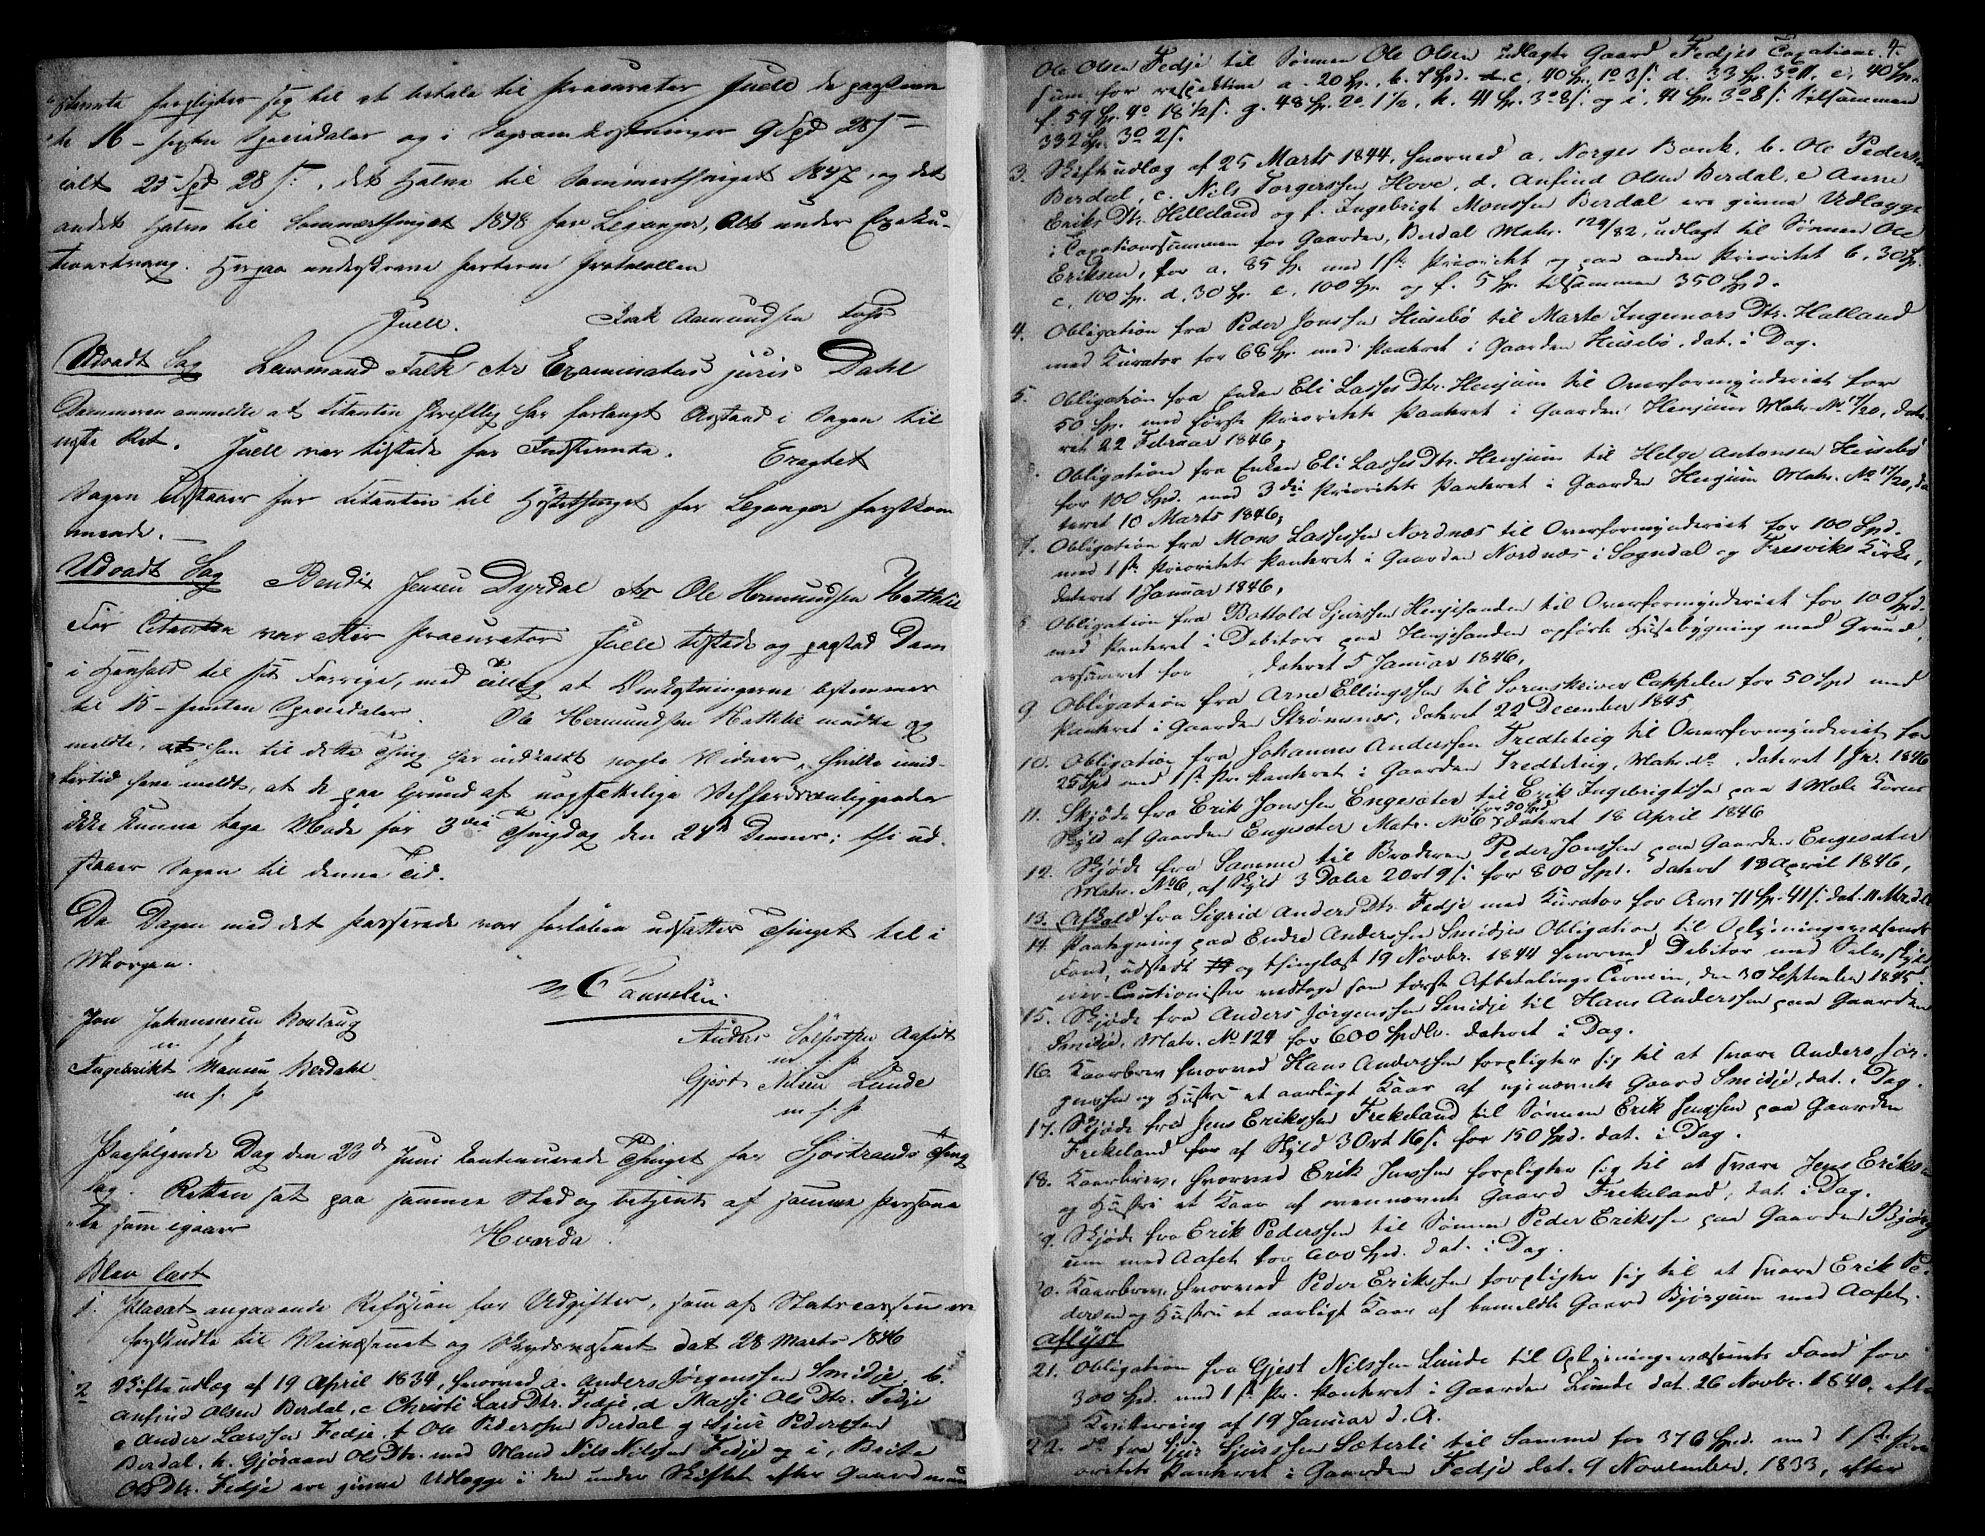 forpligter sig til at betale til Procurator Juell de paastevn
te 16 – sexten Speciedaler og i Sagsomkostninger 9 Spd 28 s –
ialt 25 Spd 28 s:, det Halve til Sommerthinget 1847, og det
andet Halve til Sommerthinget 1848 for Leganger, Alt under Exeku-
tionstvang. Herpaa underskreve Parterne Protocollen
Juell. Isak Aamundsen
Udsadt Sag Lensmand Falk ctr Examinatus juris Dahl
Dommeren anmeldte at Citanten skriftlig har forlangt Anstand i Sagen til
næste Ret. Juell var tilstede for Indstevnte. Eragtet
Sagen udstaaer for Citanten til Høstethinget for Leganger førstkom
mende. –
Udsadt Sag Bendix Jensen Dyrdal ctr Ole Hermundsen Hatlelie
For Citanten var atter Procurator Juell tilstede og paastod Dom
i Henhold til sit Forrige, med Tillæg at Omkostningerne bestemmes
til 15 – femten Speciedaler. Ole Hermundsen Hatlelie mødte og
meldte, at han til dette Thing har indkaldt nogle Vidner, hvilke imid-
lertid have meldt, at de paa Grund af uopsættelige Velfærdsanliggender
ikke kunne tage Møde før 3die Thingdag den 24de Dennes; thi ud-
staaer Sagen til denne Tid.
Da Dagen med det Passerede var forløben udsattes Thinget til i
Morgen.
N Cappelen
Jon Johannesen Anders
m. f. P. m f P
Ingebrikt Monsen Berdahl Gjest Nilsen Lunde
m. f. P m f P
Paafølgende Dag den 23de Juni kontinuerede Thinget for Systrands Thing
lag. Retten sat paa samme Sted og betjent af samme Persona
le som igaar Hvorda
Blev læst
1. Placat angaaende Refusion for Udgifter, som af Statscassen ere
forskudte til Veivæsenet og Skydsvæsenet dat 28 Marts 1846
2 Skifteudlæg af 19 April 1834, hvorved a. Anders Jørgenssen Smidje, b.
Anfind Olsen Berdal, c Christi LarsDtr. Fedje, d Massi OlsDtr. Fedje
e Anders Larssen Fedje, f Ole Pederssen Berdal g Sjur Pederssen
Berdal, h. Gjøraan OlsDtr. med Mand Nils Nilssen Fedje og i, Brita
OlsDtr. Fedje ere givne Udlægge i den under Skiftet efter Gaardmand
4.
Ole Olsen Fedje til Sønnen Ole Olsen udlagte Gaard Fedjes Taxations
sum for respektive a. 20 Sp., b. 7 Spd. c, 40 Sp. 1o 3 s. d. 33 Sp. 3o 11, e, 40 Sp.
f. 59 Sp. 4o 18 1/2 s. g. 48 Sp. 2o 1 1/2, h. 41 Sp. 3o 8 s. og i, 41 Sp. 3o 8 s. tilsammen
332 Sp. 3o 2 s.
3. Skifteudlæg af 25 Marts 1844, hvorved a. Norges Bank, b. Ole Peders
Berdal, c. Nils Torgerssen Hove, d. Anfind Olsen Berdal, e Anne
Eriks Dtr. Helleland og f. Ingebrigt Monssen Berdal ere givne Udlægge
i Taxationssummen for Gaarden, Berdal Matr. 129/82, udlagt til Sønnen Ole
Eriksen, for a. 85 Sp. med 1ste Prioritet og paa anden Prioritet b, 30 Sp.
c. 100 Sp. d. 30 Sp. e. 100 Sp. og f. 5 Sp. tilsammen 350 Spd.
4. Obligation fra Peder Jonssen Husebø til Marte IngemorsDtr. Holland
med Kurator for 68 Sp. med Panteret i Gaarden Husebø, dat. i Dag.
5. Obligation fra Enken Eli LassesDtr. Henjum til Overformynderiet for
50 Sp. med første Prioritets Panteret i Gaarden Henjum Matr. No 17/20, date
ret 22 Februar 1846;
Obligation fra Enken Eli LassesDtr. Henjum til Helge Antonsen Husebø
for 100 Spd. med 3die Prioritets Panteret i Gaarden Henjum Matr. No 17/20, da
teret 10 Marts 1846;
7. Obligation fra Mons Lassessen Nordnæs til Overformynderiet for 100 Spd.
med 1ste Prioritets Panteret i Gaarden Nordnæs i Sogndal og Fresviks Kirke,
dateret 1 Januar 1846,
Obligation fra Botold Sjurssen Henjesanden til Overformynderiet for 100 Spd.
med Panteret i Debitors paa Henjesanden opførte Huusebygning med Grund,
assureret for , dateret 5 Januar 1846,
9 Obligation fra Arne Ellingssen til Sorenskriver Cappelen for 50 Spd med
Panteret i Gaarden Strømsnæs, dateret 22 December 1845
10. Obligation fra Johannes Anderssen Tredteteig til Overformynderiet for
25 Spd med 1ste Pr. Panteret i Gaarden Tredteteig, Matr. No , dateret 1 Jr. 1846
11. Skjøde fra Erik Jonssen Engesæter til Erik Ingebrigtssen paa 1 Mæle Korns
Skyld af Gaarden Engesæter Matr. No 6 for 50 Spd dateret 18 April 1846
12. Skjøde fra Samme til Broderen Peder Jonssen paa Gaarden Engesæter
Matr. No 6, af Skyld 3 Daler 2 Ort 9 s. for 800 Spd. dateret 18 April 1846,
13. Afkald fra Sigrid Anders Dtr. Fedje med Kurator for Arv 71 Sp. 41 s. dat. 11 Mr. d. A
14 Paategning paa Endre Anderssen Smidjes Obligation til Oplysningsvæsenets
Fond, udstedt og thinglæst 19 Novbr. 1844 hvorved Debitor med Selvskyld
ner-Cautionister vedtage som første Afbetalings Termin, den 30 September 1845
15. Skjøde fra Anders Jørgenssen Smidje til Hans Anderssen paa Gaarden
Smidje, Matr. No 124 for 600 Spdlr. dateret i Dag.
16. Kaarbrev hvorved Hans Anderssen forpligter sig til at svare Anders Jør-
genssen og Hustru et aarligt Kaar af nysnævnte Gaard Smidje, dat. i Dag.
17. Skjøde fra Jens Erikssen Frekeland til Sønnen Erik Jenssen paa Gaarden
Frekeland af Skyld 3 Ort 16 s. for 150 Spd. dat. i Dag.
18. Kaarbrev, hvorved Erik Jenssen forpligter sig til at svare Jens Eriks
og Hustru et Kaar af ovennævnte Gaard Frekeland, dat. i Dag.
9. Skjøde fra Erik Pederssen til Sønnen Peder Erikssen paa Gaarden Bjørg
um med Aafet for 600 Spd. dat. i Dag.
20. Kaarbrev, hvorved Peder Erikssen forpligter sig til at svare Erik Pe-
dersen og Hustru et aarligt Kaar af bemeldte Gaard Bjørgum med Aafet.
Aflyst
21. Obligation fra Gjest Nilssen Lunde til Oplysningsvæsenets Fond for
300 Spd. med 1ste Pr. Panteret i Gaarden Lunde dat. 26 Novbr. 1840, efter
Kvitering af 19 Januar d. A.
22. do fra Sjur Sjurssen Sæterli til Samme for 376 Spd. med 1ste Pri
oritets Panteret i Gaarden Fedje dat. 9 November, 1833, efter